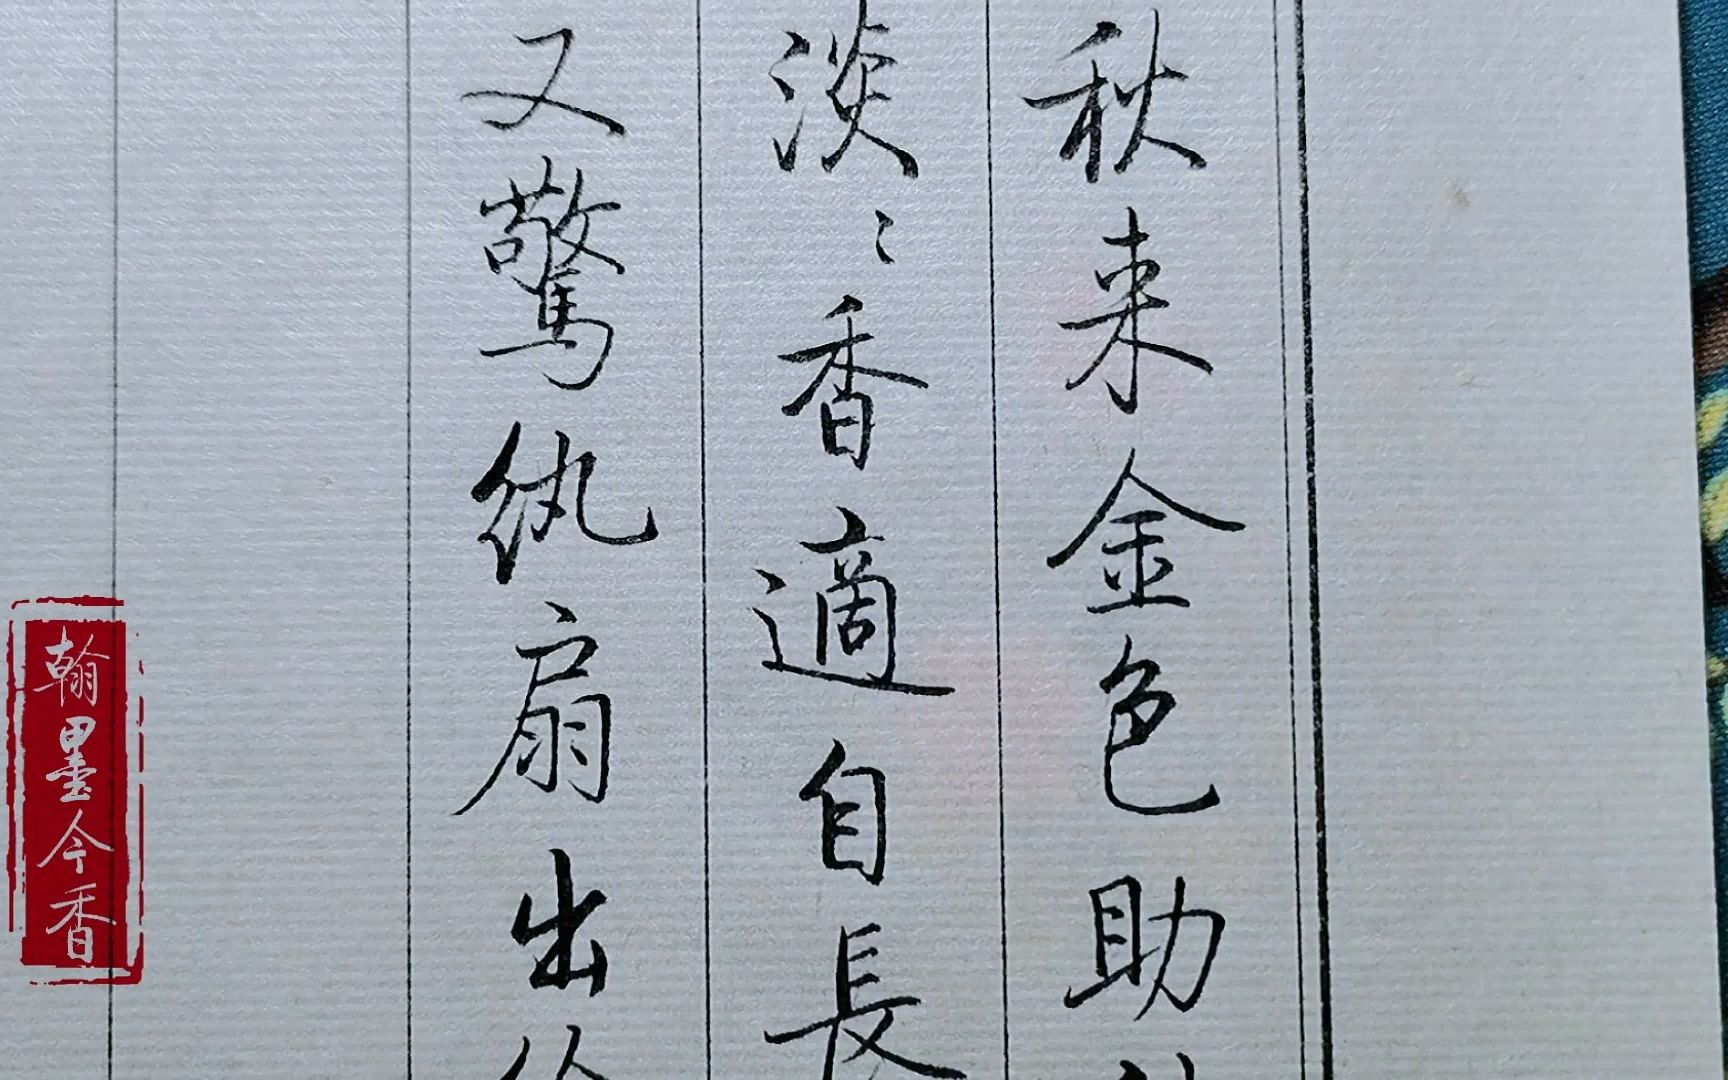 秋来金色助
淡〻香適自長
又驚紈扇出
翰墨今香